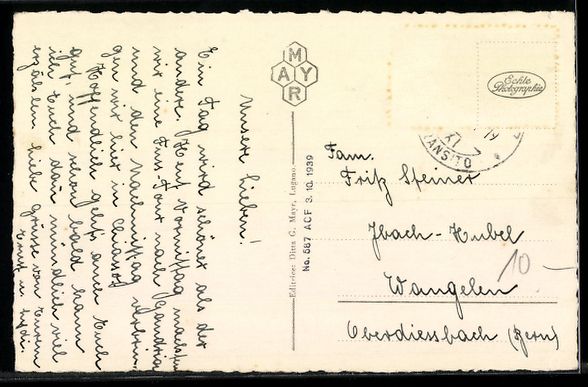 Unsere Lieben!
Ein Tag wird schöner als der
andere. Heut Vormittag machten
wir eine Fuss-Tour nach Gandria
und den Nachmittag verbrin-
gen wir hier in Chiasso.
Hoffentlich geht's auch Euch
gut, und schon bald kann
ich Euch dann mündlich viel
erzählen. Liebe Grüsse von Eurem
Ernst u.
MAYR
MAYR
Editrice: Ditta G. Mayr, Lugano
No. 587 ACF 3. 10. 1939
Echte
Photographie
XI
TRANSITO
Fam.
Fritz Steiner
Ibach-Hubel
10.—
Wangelen
Oberdiessbach (Bern)